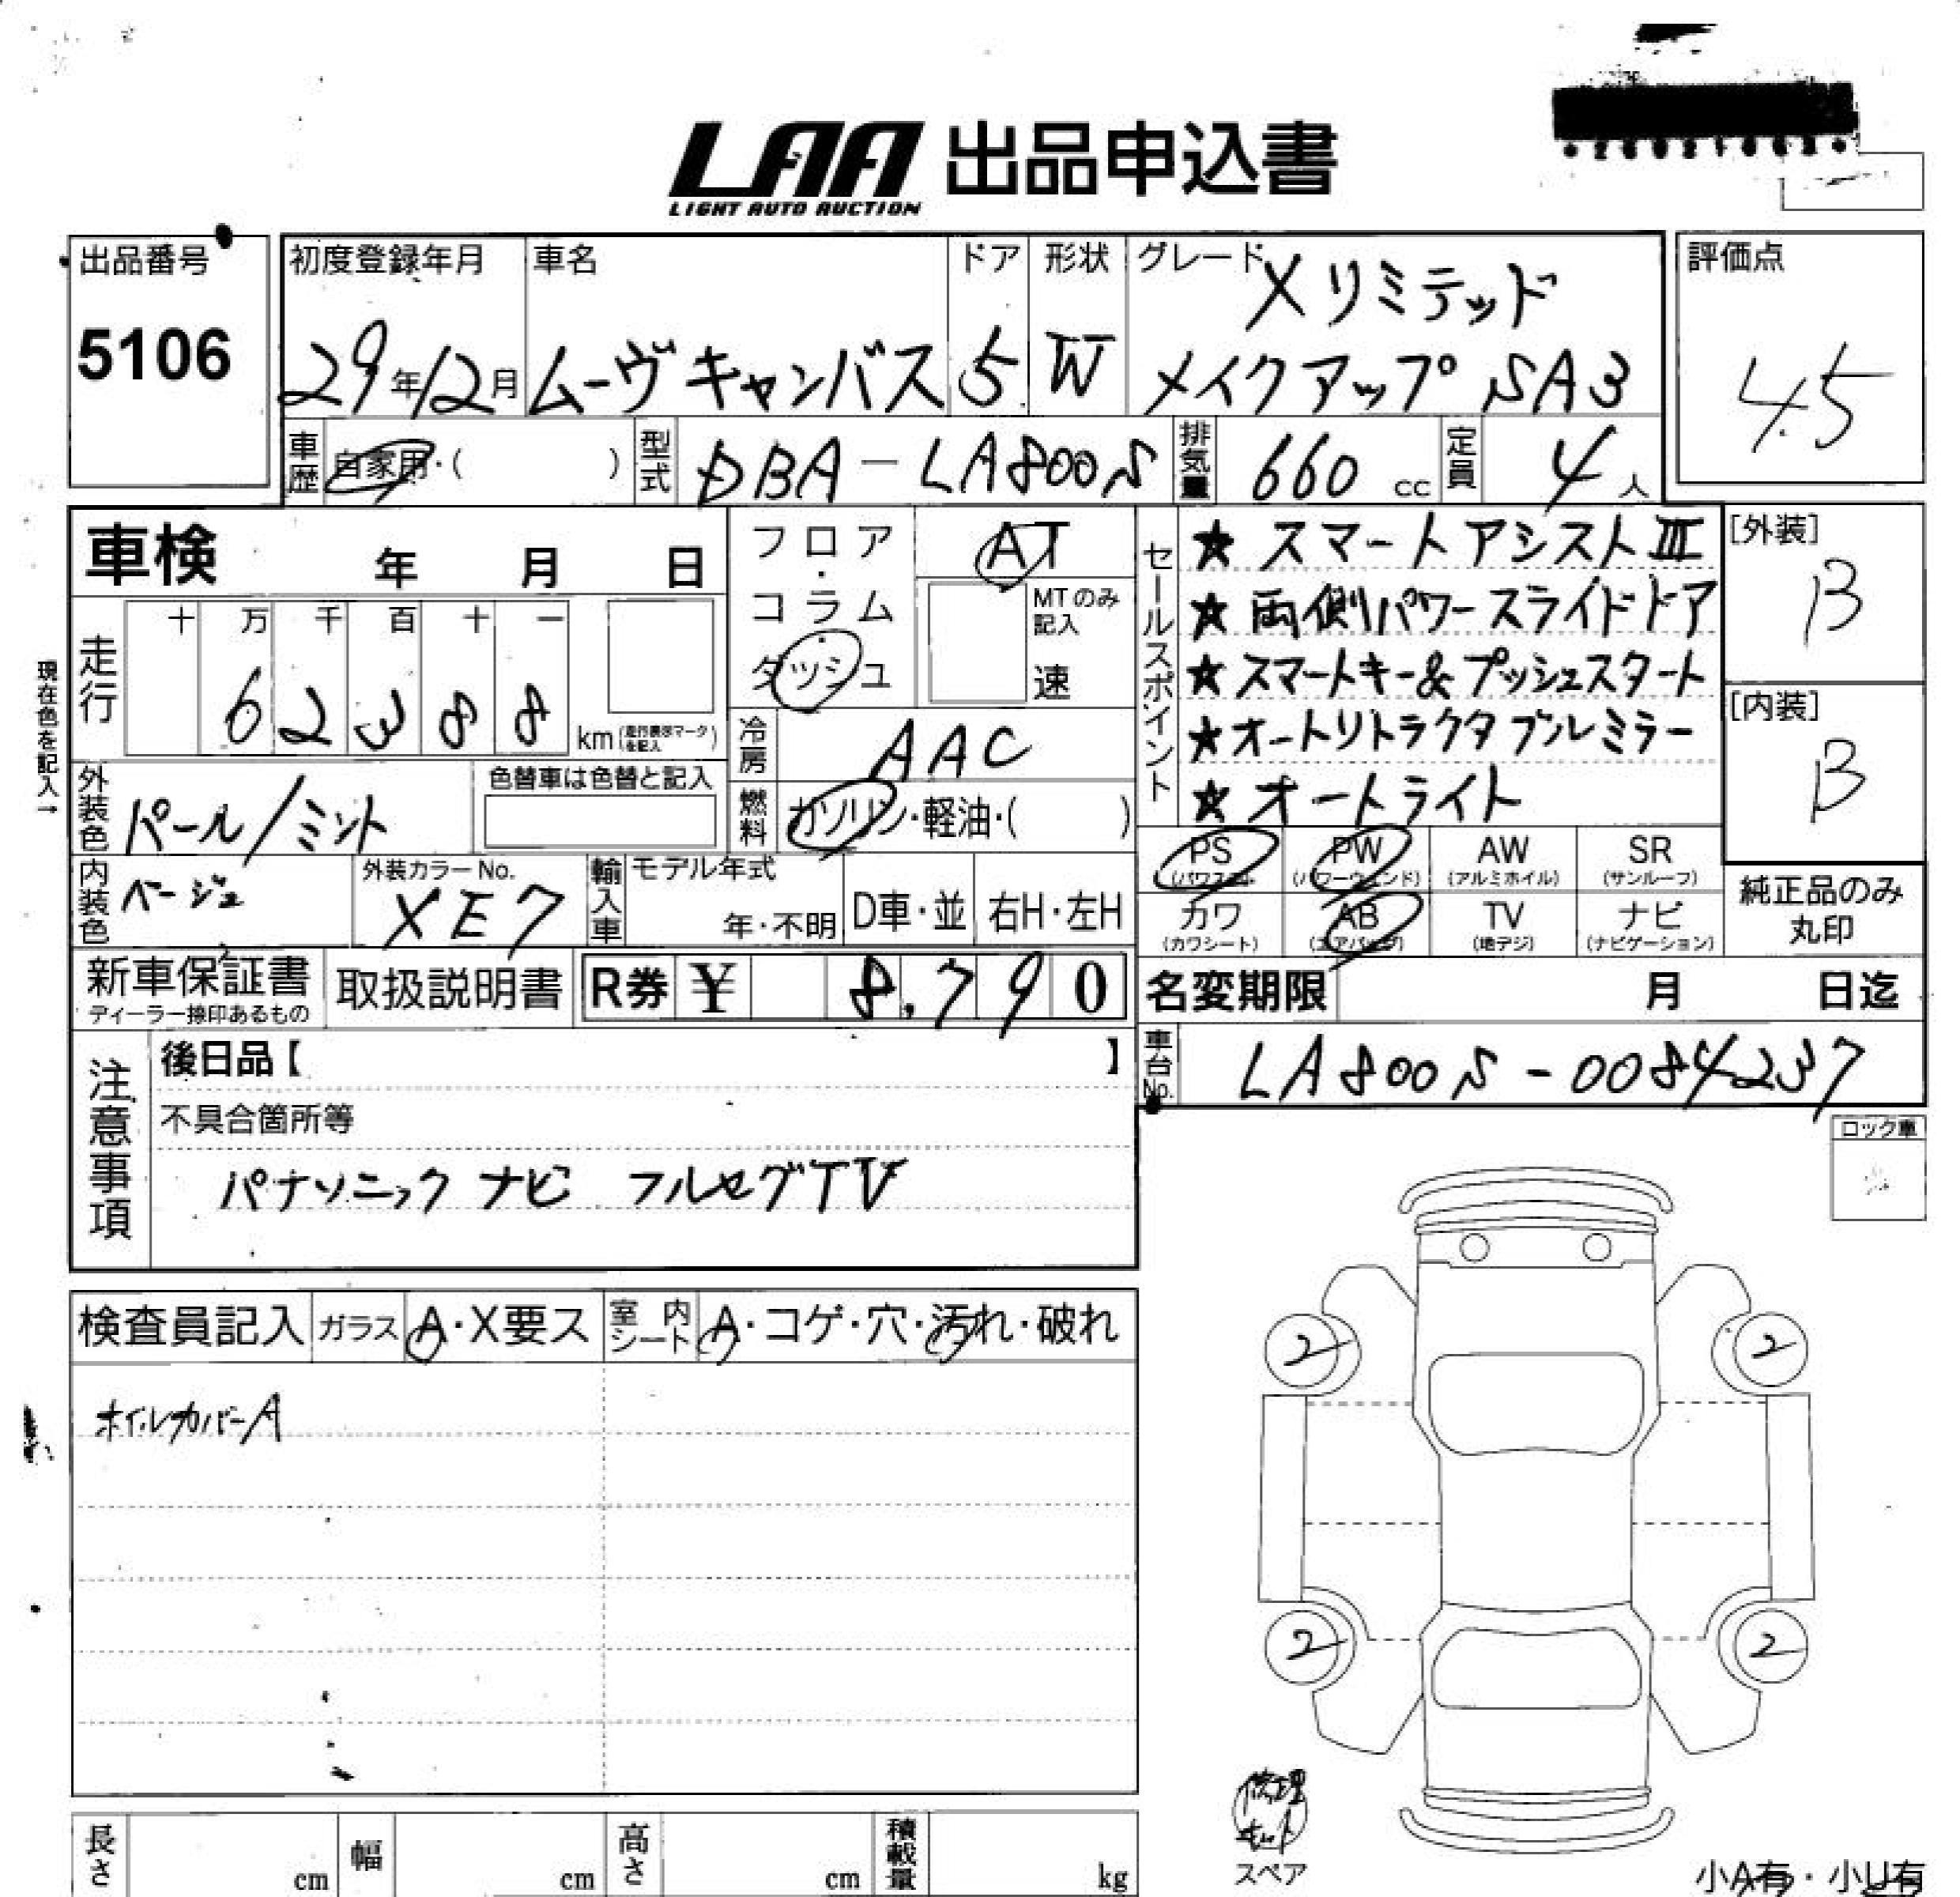 LAA 出品申込書
LIGHT AUTO AUCTION
出品番号
5106
初度登録年月
29年12月
車名
ムーヴキャンバス
ドア
5
形状
W
グレード
Xリミテッド
メイクアップ SA3
評価点
4.5
車歴 自家用・( )
型式 DBA-LA800S
排気量 660 cc
定員 4人
車検 年 月 日
走行
十 万 千 百 十 一
6 2 3 8 8 km
現在色を記入→
外装色 パール/ミント
色替車は色替と記入
内装色 ベージュ
外装カラーNo.
XE7
フロア・コラム・ダッシュ
AT
MTのみ記入
速
冷房 AAC
燃料 ガソリン・軽油・( )
輸入車 モデル年式
年・不明 D車・並 右H・左H
セールスポイント
★スマートアシストⅢ
★両側パワースライドドア
★スマートキー&プッシュスタート
★オートリトラクタブルミラー
★オートライト
[外装]
B
[内装]
B
PS (パワステ) PW (パワーウィンド) AW (アルミホイル) SR (サンルーフ)
カワ (カワシート) AB (エアバッグ) TV (地デジ) ナビ (ナビゲーション)
純正品のみ丸印
新車保証書
ディーラー捺印あるもの
取扱説明書
R券 ¥ 8,790
名変期限 月 日迄
車台No. LA800S-0084237
注意事項
後日品【 】
不具合箇所等
パナソニック ナビ フルセグTV
ロック車
検査員記入 ガラス A・X要ス 室内シート A・コゲ・穴・汚れ・破れ
ホイルカバーA
2 2
2 2
修理キット
スペア
小A有・小U有
長さ cm 幅 cm 高さ cm 積載量 kg